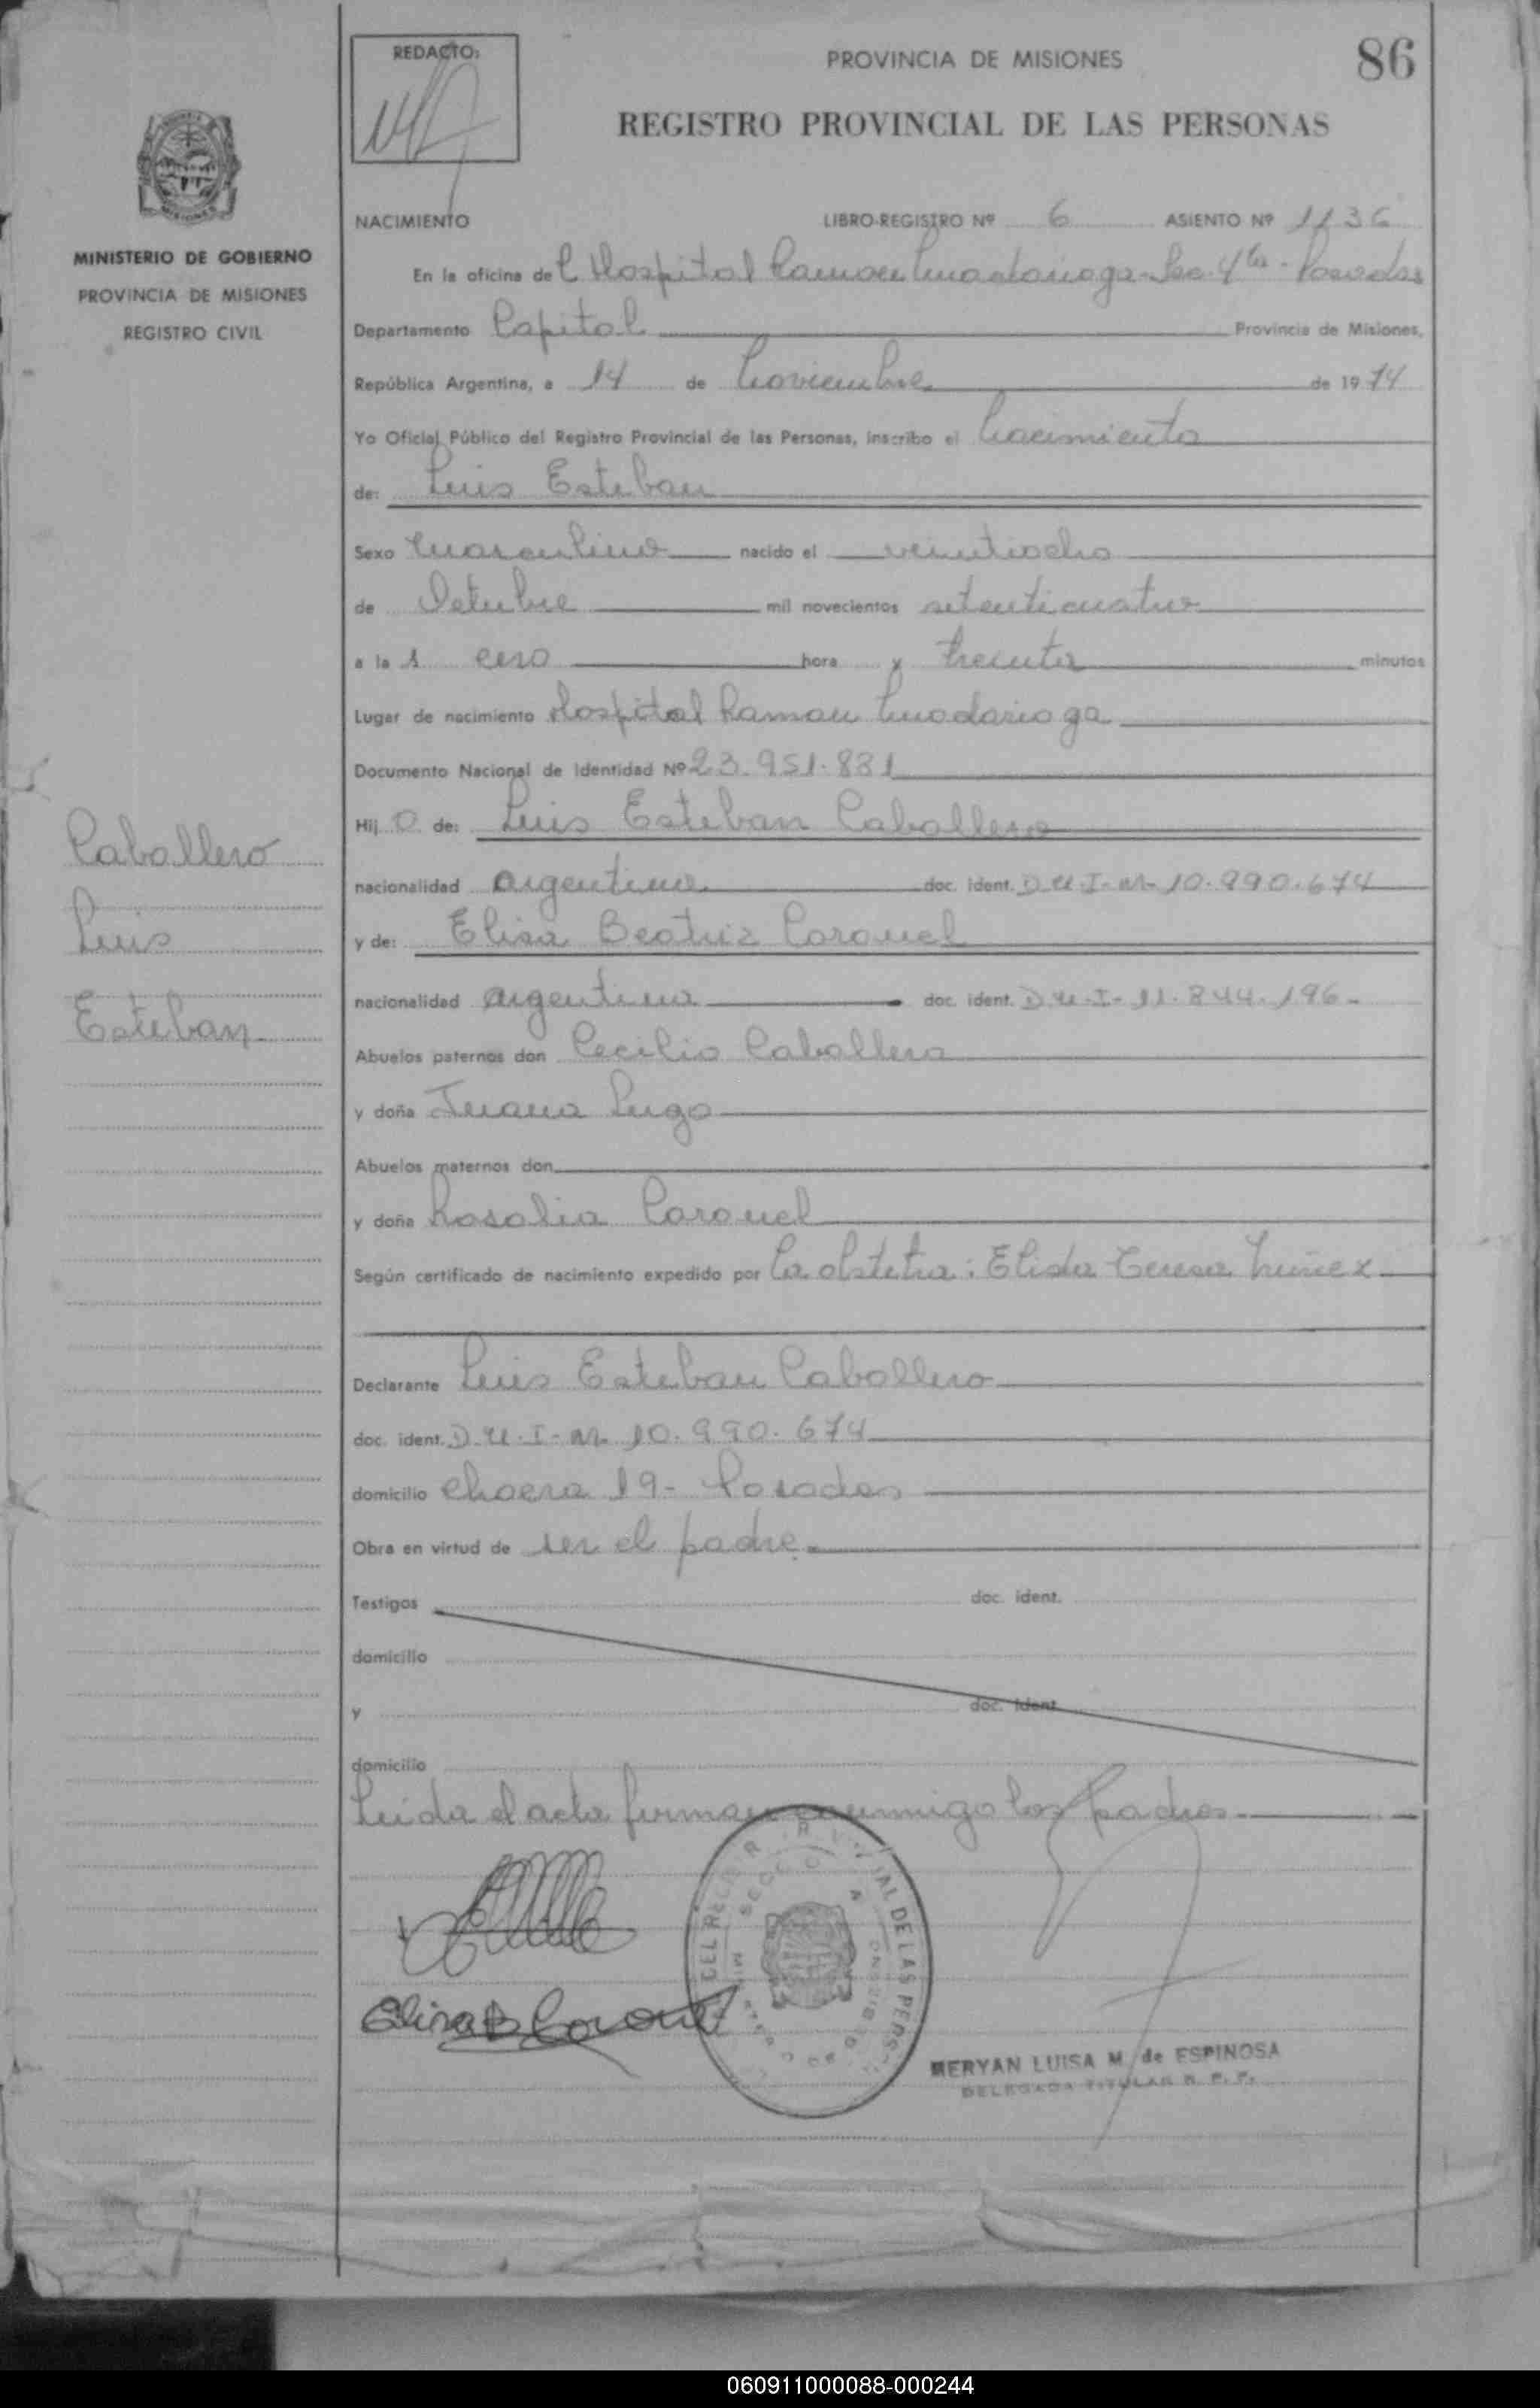 REDACTO:
PROVINCIA DE MISIONES
86
REGISTRO PROVINCIAL DE LAS PERSONAS
MINISTERIO DE GOBIERNO
PROVINCIA DE MISIONES
REGISTRO CIVIL
NACIMIENTO LIBRO-REGISTRO Nº 6 ASIENTO Nº 1136
En la oficina del Hospital Ramon Madariaga - Sec. 4ta - Posadas
Departamento Capital Provincia de Misiones,
República Argentina, a 14 de Noviembre de 1974
Yo Oficial Público del Registro Provincial de las Personas, inscribo el Nacimiento
de: Luis Esteban
Sexo Masculino nacido el veintiocho
de Octubre mil novecientos setenticuatro
a la 1 cero hora y treinta minutos
Lugar de nacimiento Hospital Ramon Madariaga
Documento Nacional de Identidad Nº 23.951.831
Hij o de: Luis Esteban Caballero
nacionalidad argentino doc. ident. D.N.I. M- 10.990.674
y de: Elisa Beatriz Coronel
nacionalidad argentina doc. ident. D.N.I- 11.844.196-
Abuelos paternos don Cecilio Caballero
y doña Juana Lugo
Abuelos maternos don
y doña Rosalia Coronel
Según certificado de nacimiento expedido por La obstetra: Elida Teresa Nuñez
Declarante Luis Esteban Caballero
doc. ident. D.N.I- M- 10.990.674
domicilio chacra 19- Posadas
Obra en virtud de ser el padre.
Testigos doc. ident.
domicilio
y doc. ident.
domicilio
Leida el acta firman conmigo los padres.
Caballero
Luis
Esteban
Elisa B Coronel
MERYAN LUISA M. de ESPINOSA
DELEGADA TITULAR R. P. P.
060911000088-000244